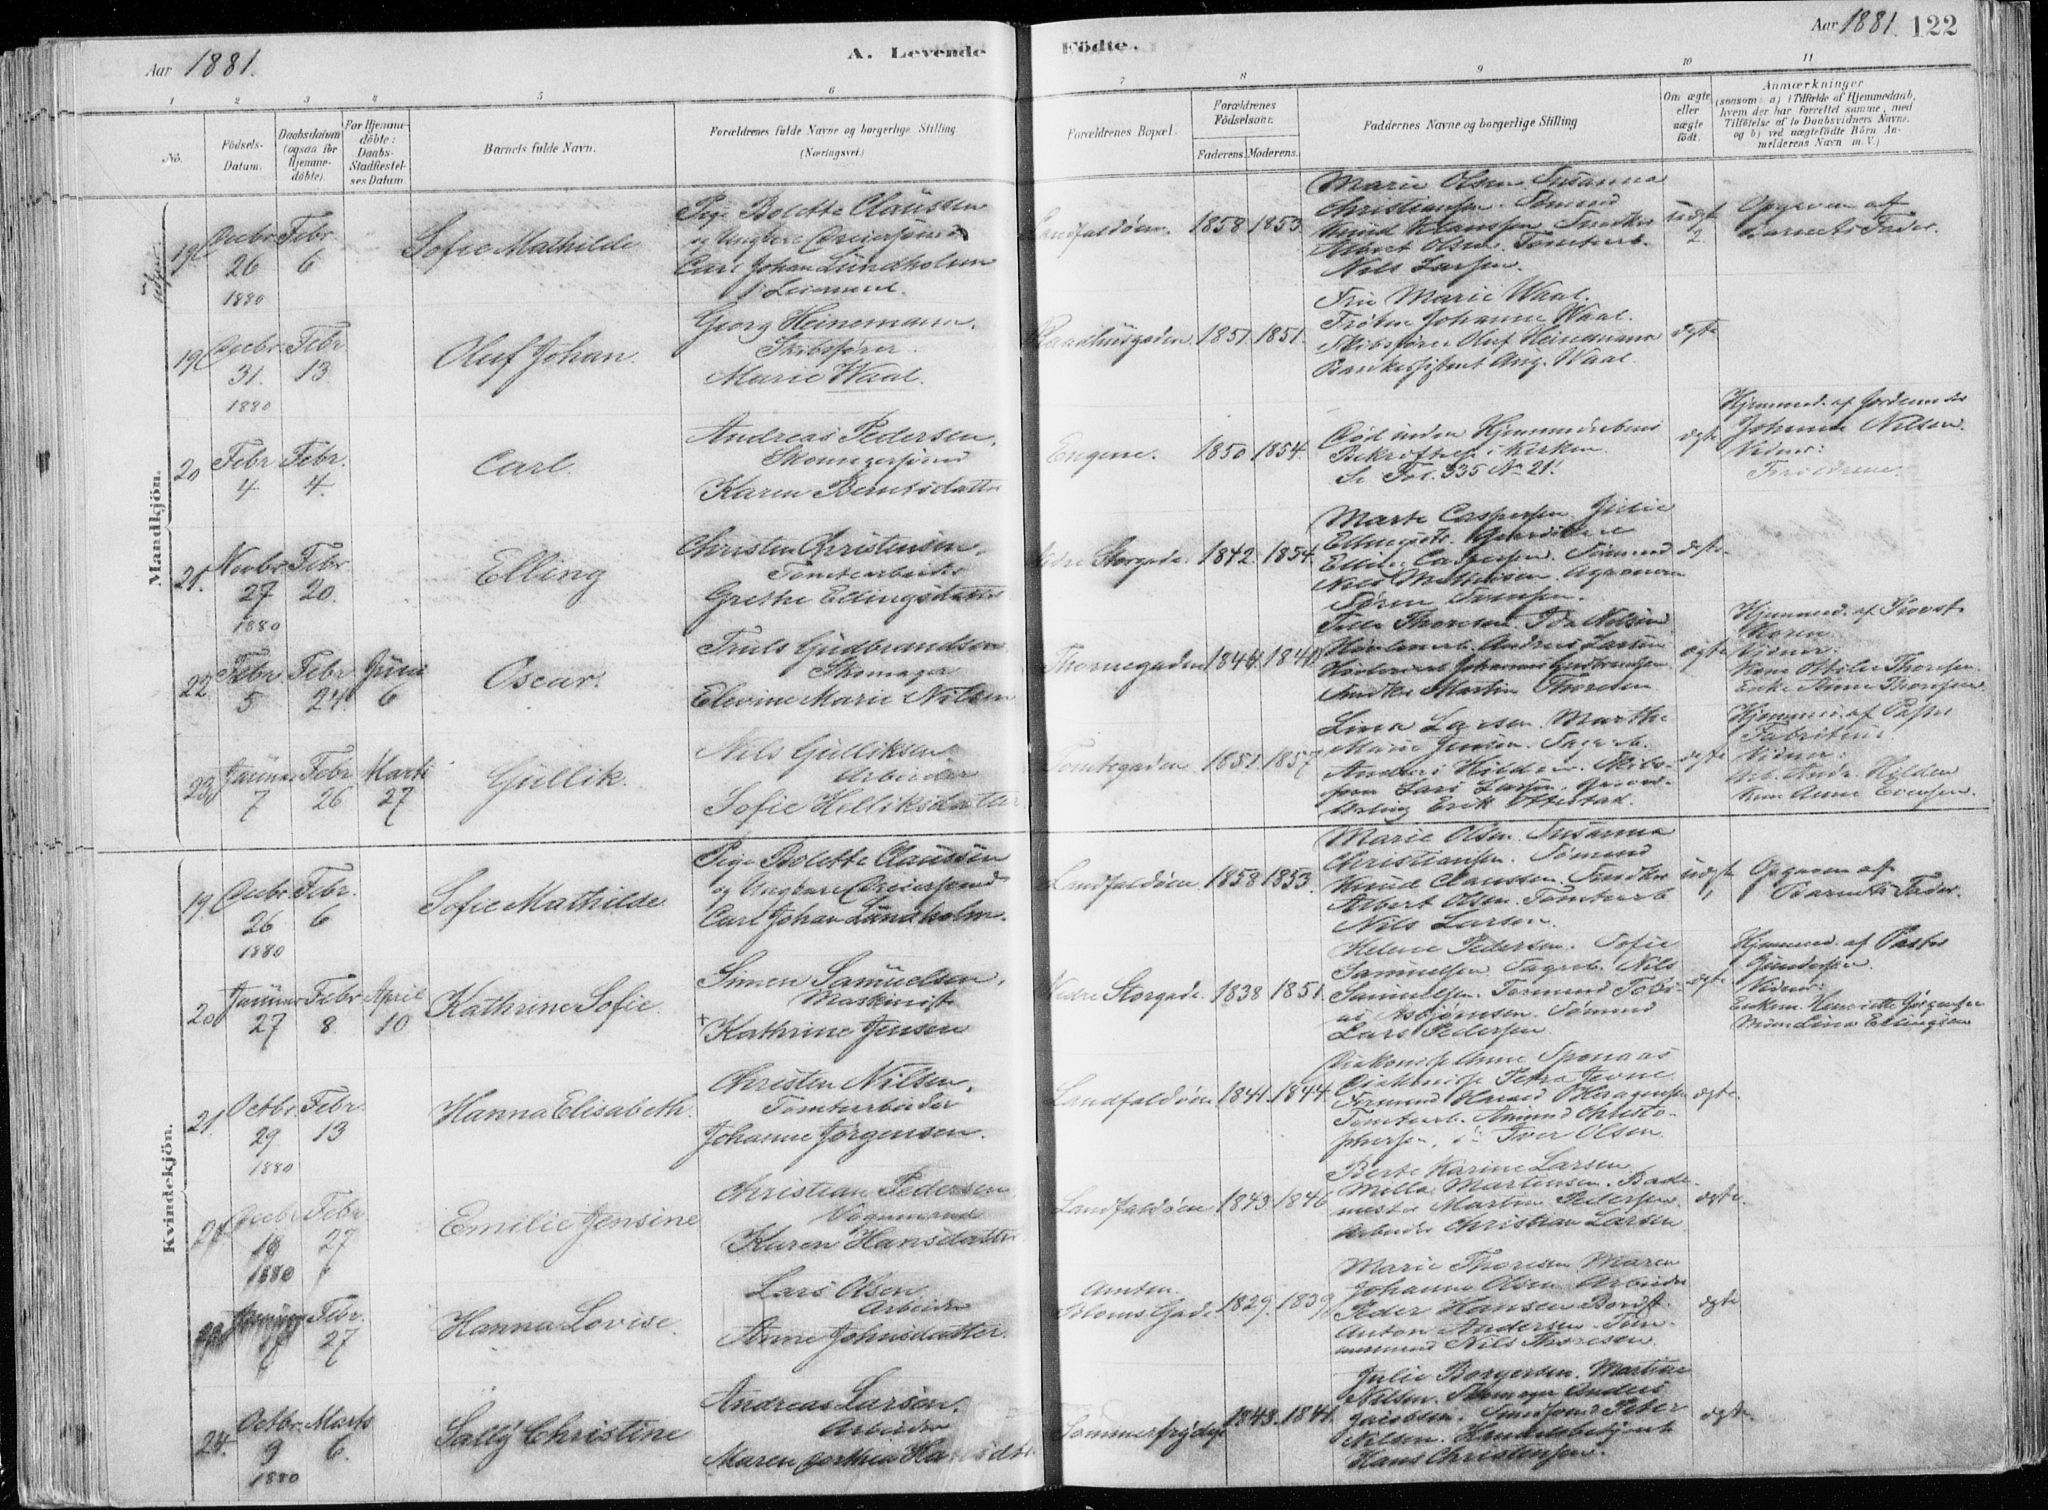 Aar 1881.
A. Levende
Födte.
Aar 1881. 122
1 2 3 4 5 6 7 8 9 10 11
No.
Födsels-Datum.
Daabsdatum (ogsaa for Hjemme-döbte).
For Hjemme-döbte: Daabs-Stadfæstel-ses Datum.
Barnets fulde Navn.
Forældrenes fulde Navne og borgerlige Stilling
(Næringsvei.)
Forældrenes Bopæl.
Forældrenes Födselsaar.
Faderens. Moderens.
Faddernes Navne og borgerlige Stilling
Om ægte eller uægte födt.
Anmærkninger
(saasom: a) i Tilfælde af Hjemmedaab, hvem der har forrettet samme, med Tilföielse af to Daabsvidners Navne. og b) ved uægtefödte Börn Anmelderens Navn m. V.)
Mandkjön.
19 Decbr. 26 1880 Febr. 6
Sofie Mathilde
Pige Bolette Claussen
Carl Johan Lundholm
Landfaldöen. 1858 1853
Marie Olsen. Susanna
Christiansen. Tömmd
Albert Olsen. Tomtearb.
Nils Larsen.
uægt 2
Opgiven af
Barnets Fader.
19 Decbr. 31. 1880 Febr. 13
Oluf Johan.
Georg Heinemann.
Skibsförer.
Marie Waal.
Raadhusgaden 1851. 1851.
Fru Marie Waal.
Fröken Johanne Waal.
Skibsförer Oluf Heinemann
Bankassistent Aug. Waal.
ægte
20 Febr. 4 Febr. 4.
Carl.
Andreas Pedersen.
Karen Berntsdatter
Engene. 1850 1854.
Död inden Hjemmedaabens
Bekræftelse i Kirken.
Se Fol. 335 No 21.
ægte
Hjemmed. af Jordemoder
Johanne Nilsen.
Vidner:
Forældrene.
21. Novbr. 27 1880 Febr. 20.
Elling
Christen Christensen.
Tomtearbeider
Grethe Ellingsdatter
Nedre Storgade. 1842. 1854.
Marte Caspersen. Julie
Nils Mathisen. Agronom
Sören Svensen.
ægte.
22 Febr. 5 Febr. 24 Juni 6
Oscar.
Truls Gudbrandsen
Skomager
Elevine Marie Nilsen
Thornegaden 1844. 1840
Thoresen. Ida Nilsen
Andreas Larsen
Johannes Gudbrandsen
Smed Martin Thoresen.
ægte
Hjemmed. af Provst
Vidner:
Kone Ottilie Thoresen.
Enke Anne Thoresen
23. Januar 7 Febr 26 Marts 27
Gullik.
Nils Gulliksen.
Arbeider
Sofie Helliksdatter
Tomtegaden 1851. 1857
Lina Larsen. Marthe
Marie Jensen. Sagarb.
Andreas Hilden.
Lars Larsen.
Erik Ottestad.
ægte
Hjemmed. af Pastor
Fabritius.
Vidner:
Arb. Andr. Hilden
Kone Anne Evensen.
Kvindekjön.
19 Decbr. 26 1880 Febr. 6
Sofie Mathilde
Pige Bolette Claussen
Carl Johan Lundholm.
Landfaldöen 1858 1853.
Marie Olsen. Susanna
Christiansen. Tömmd
Knud Claussen. Snedker
Albert Olsen. Tomtearb
Nils Larsen.
uægt 1
Opgiven af
Barnets Fader.
20 Januar 27 Febr 8. April 10
Kathrine Sofie.
Simen Samuelsen.
Maskinist
+ Kathrine Jensen
Nedre Storgade. 1838 1851.
Helene Pedersen. Sofie
Samuelsen. Sagarb. Nils
Samuelsen. Formand Tobi-
as Asbjörnsen. Tömmd
Lars Pedersen.
ægte
Hjemmed. af Pastor
Gundersen.
Vidner:
Enkem. Henriette Jörgensen
Lina Ellingsen
21. Octbr. 29 1880 Febr. 13
Hanna Elisabeth.
Christen Nilsen.
Tomtearbeider
Johanne Jörgensen.
Landfaldöen 1841. 1844.
Diakonisse Anne Sponaas
Diakonisse Petra Jevne.
Tomtearb. Amund Christo-
phersen, do Iver Olsen.
ægte.
Decbr. 19 1880 Febr. 27
Emilie Jensine
Christian Pedersen
Vognmand
Karen Hansdatter
Landfaldöen 1843. 1846
Berte Karine Larsen
Milla Martensen. Bade-
mester Martin Pedersen
Arbeider Christian Larsen
ægte.
Januar 7 Febr. 27
Hanna Lovise.
Lars Olsen
Arbeider
Anne Johnsdatter
Amtm.
Bloms Gade. 1829. 1839
Marie Thoresen Maren
Johanne Olsen Arbeider
Peder Hansen
Anton Andersen. Töm-
mermand Nils Thoresen.
ægte.
24. Octbr. 9 1880 Marts 6.
Sally Christine
Andreas Larsen.
Arbeider
Maren Dorthea Hansdtr.
Sommerfrydg. 1843. 1841.
Julie Borgersen. Martine
Nilsen. Skomager Anders
Jacobsen. Peter
Nilsen. Handelsbetjent
Hans Christensen.
ægte.